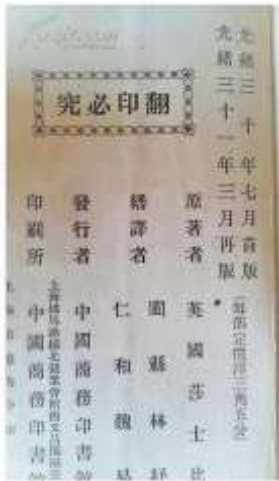 光緒三十年七月首版
光緒三十一年三月再版
翻印必究
原著者 英國莎士比
繙譯者 閩縣林紓
仁和魏易
發行者 中國商務印書館
印刷所 中國商務印書館